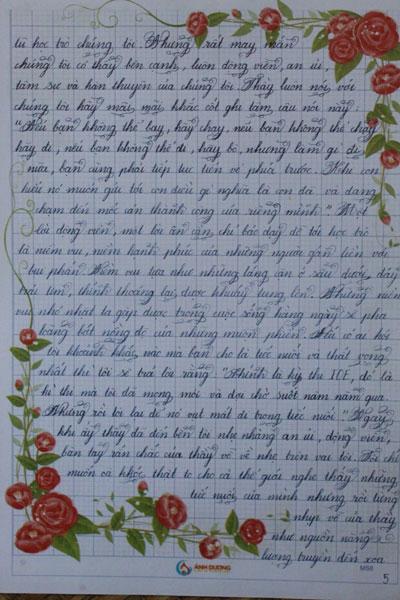 từ học trò chúng tôi. Nhưng rất may mắn
chúng tôi có thầy bên cạnh, luôn động viên an ủi,
tâm sự và hàn thuyên của chúng tôi. Thầy luôn nói với
chúng tôi hãy mãi mãi khắc cốt ghi tâm câu nói này:
"Nếu bạn không thể bay, hãy chạy, nếu bạn không thể chạy
hãy đi, nếu bạn không thể đi, hãy bò, nhưng làm gì đi
nữa, bạn cũng phải tiếp tục tiến về phía trước. Nếu con
hiểu nó muốn gửi tới con dưới gì nghĩa là con đã và đang
chạm đến mốc ấn thành công của riêng mình". Một
lời động viên, một lời ân cần chỉ bảo dạy dỗ tôi học trò
là niềm vui, niềm hạnh phúc của những người gắn liền với
bụi phấn. Niềm vui tựa như những tảng ẩn ở sâu dưới đáy
trái tim, thỉnh thoảng lại được khuấy tung lên. Những niềm
vui nhỏ nhất ta gặp được trong cuộc sống hàng ngày sẽ pha
loãng bớt nồng độ của những muộn phiền. Nếu có ai hỏi
tôi khoảnh khắc nào mà bạn cho là tiếc nuối và thất vọng
nhất thì tôi sẽ trả lời rằng: "Chính là kỳ thi IOE, đó là
kì thi mà tôi đã mong mỏi và đợi chờ suốt năm năm qua
Nhưng rồi tôi lại để nó vụt mất đi trong tiếc nuối." Ngay
khi ấy thầy đã đến bên tôi nhẹ nhàng an ủi, động viên,
bàn tay rắn chắc của thầy vỗ về nhẹ trên vai tôi. Tôi chỉ
muốn cả khóc thật to cho cả thế giới nghe thấy những
tiếc nuối của mình nhưng rồi từng
nhịp vỗ của thầy
như nguồn năng
lượng truyền đến xoa
ÁNH DƯƠNG
MS8
5